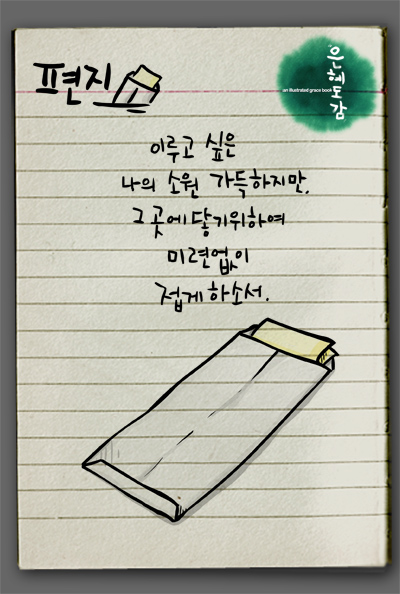 편지
은혜도감
an illustrated grace book
이루고 싶은
나의 소원 가득하지만,
그 곳에 닿기위하여
미련없이
접게 하소서.